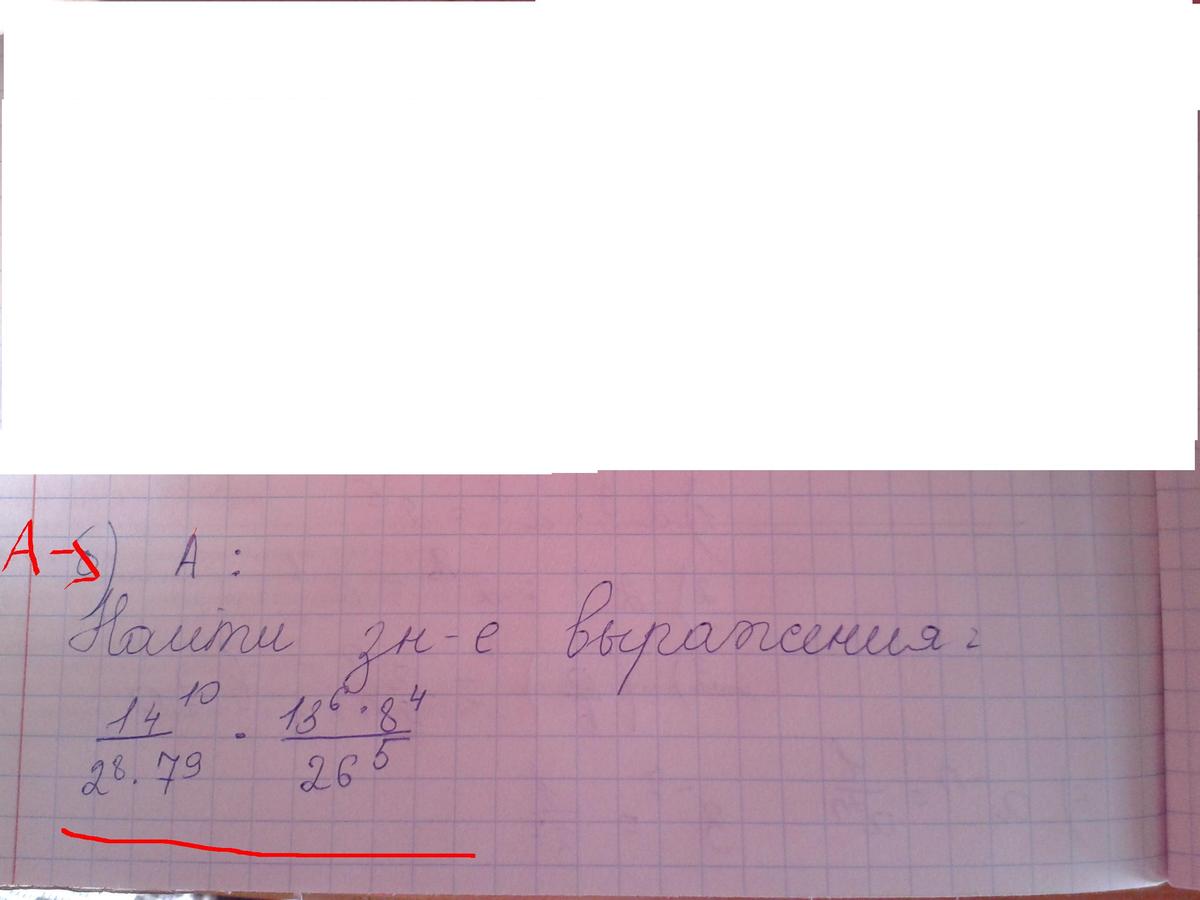 А → б) А :
Найти зн-е выражения:
14¹⁰ / 2⁸ · 7⁹ · 13⁶ · 8⁴ / 26⁵